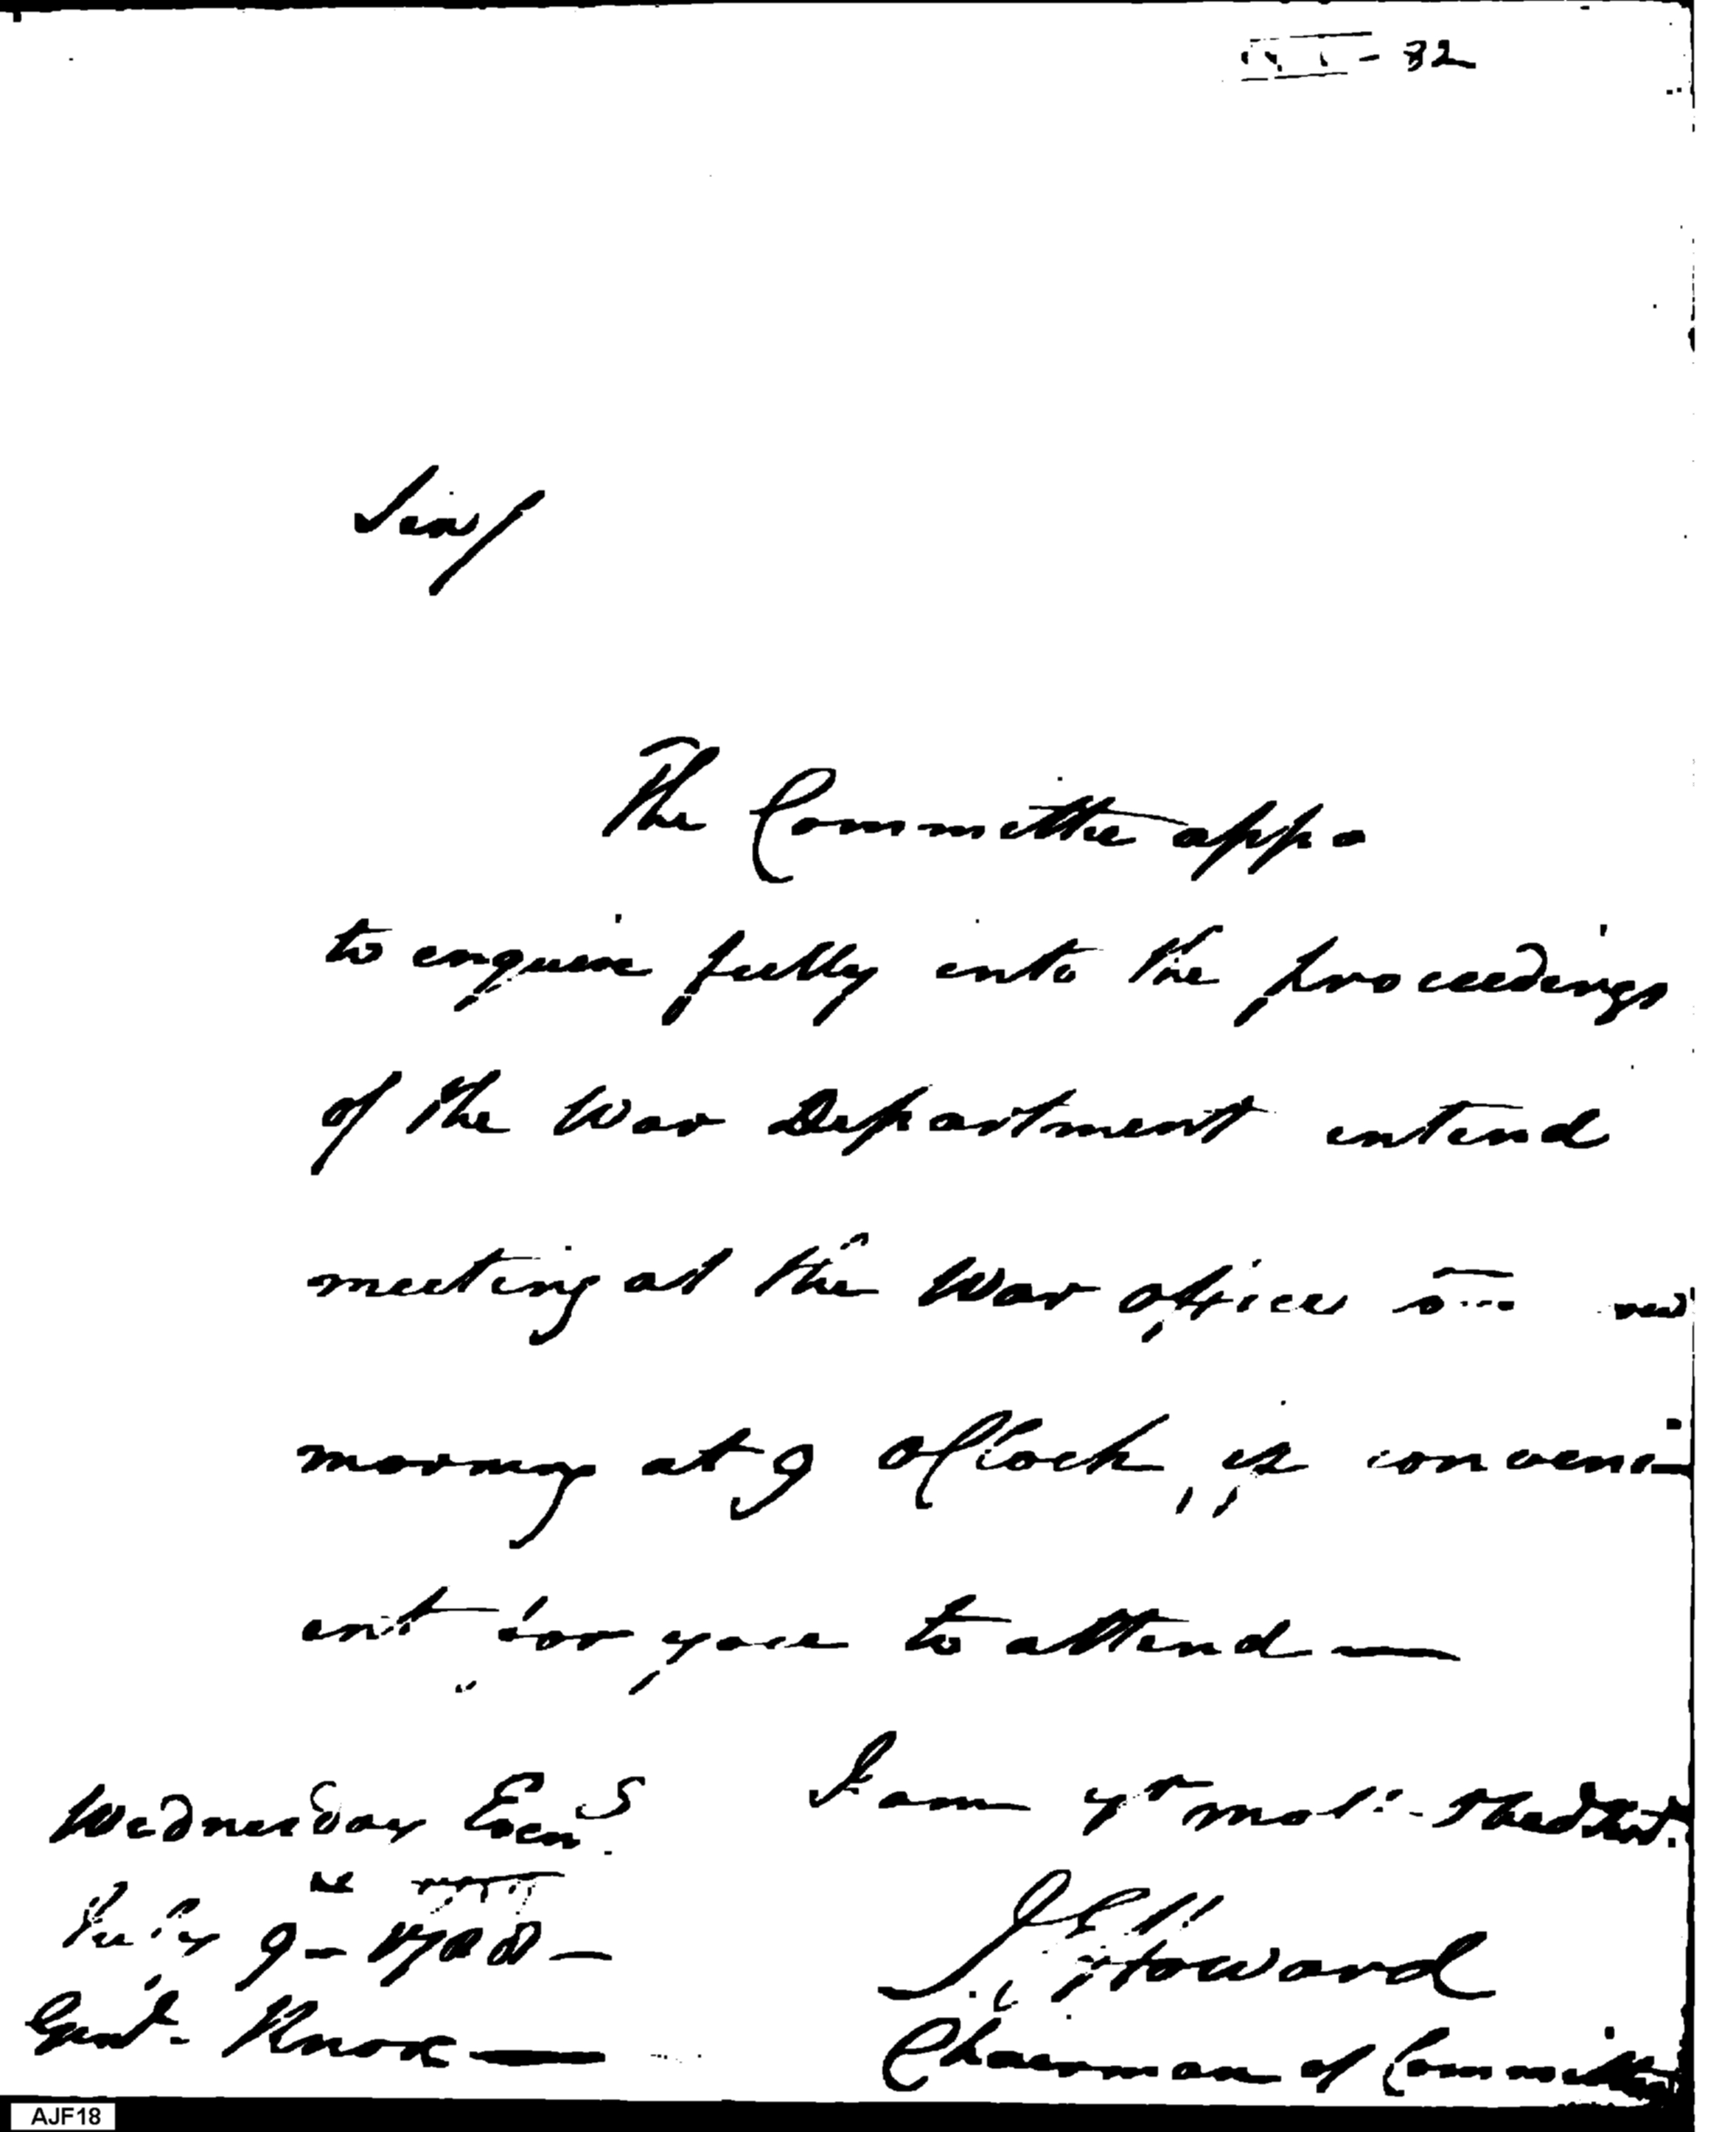 - 82
Sir/
The Committee app
to enquire fully into the proceedings
of the War Department intend
meeting at the War office
morning at 9 oClock, if conveni
ent for you to attend —
Wednesday Eveng I am yr most
9 - 1788 —
Howard
Genl. Knox —
Chairman of Committee
AJF18